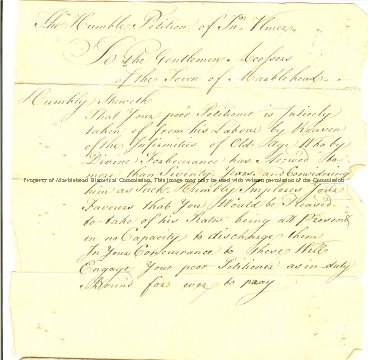 The Humble Petition of Jn. Ulmer
To The Gentlemen Assessors
of the Town of Marblehead
Humbly Sheweth
That Your poor Petitioner is Intirely
taken of from his Labour by Reason
of the Infirmities of Old Age Who by
Divine Forbearance has Arrived to
more than Seventy Years and Considering
Property of Marblehead Historical Commission. This image may only be used with written permission of the Commission
him as Such Humbly Implores Your
Favours that You Would be Pleased
to take of his Rates being att Present
in no Capacity to discharge them
In Your Concurrance to these Will
Engage Your poor Petitioner as in duty
Bound for ever to pray